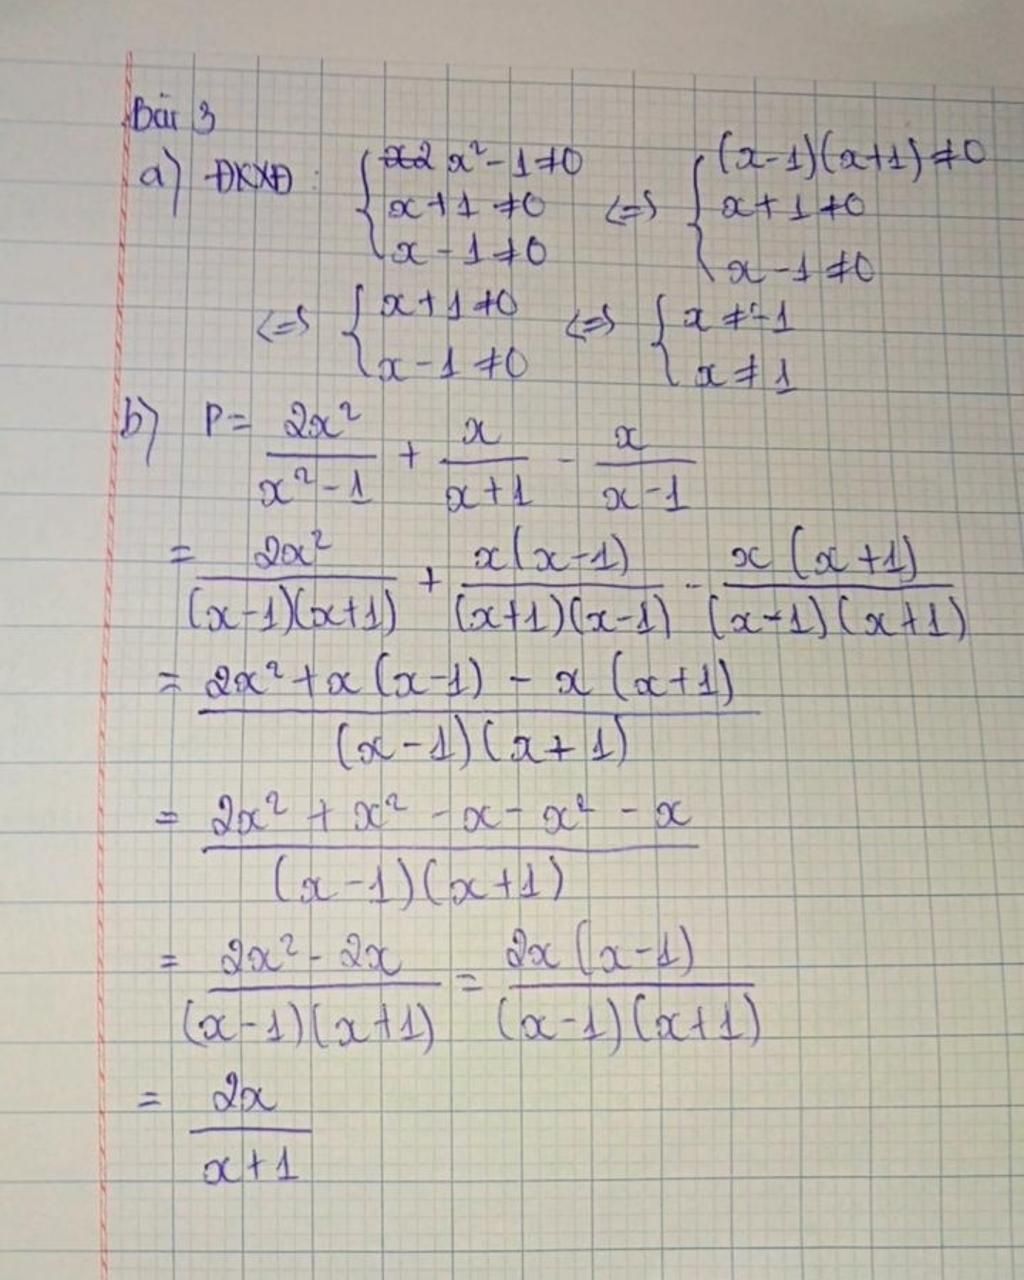 Bài 3
a) ĐKXĐ: { x2 x² - 1 ≠ 0 ; x + 1 ≠ 0 ; x - 1 ≠ 0 <=> { (x-1)(x+1) ≠ 0 ; x + 1 ≠ 0 ; x - 1 ≠ 0
<=> { x + 1 ≠ 0 ; x - 1 ≠ 0 <=> { x ≠ -1 ; x ≠ 1
b) P = 2x²/(x² - 1) + x/(x+1) - x/(x-1)
= 2x²/((x-1)(x+1)) + x(x-1)/((x+1)(x-1)) - x(x+1)/((x-1)(x+1))
= (2x² + x(x-1) - x(x+1))/((x-1)(x+1))
= (2x² + x² - x - x² - x)/((x-1)(x+1))
= (2x² - 2x)/((x-1)(x+1)) = 2x(x-1)/((x-1)(x+1))
= 2x/(x+1)